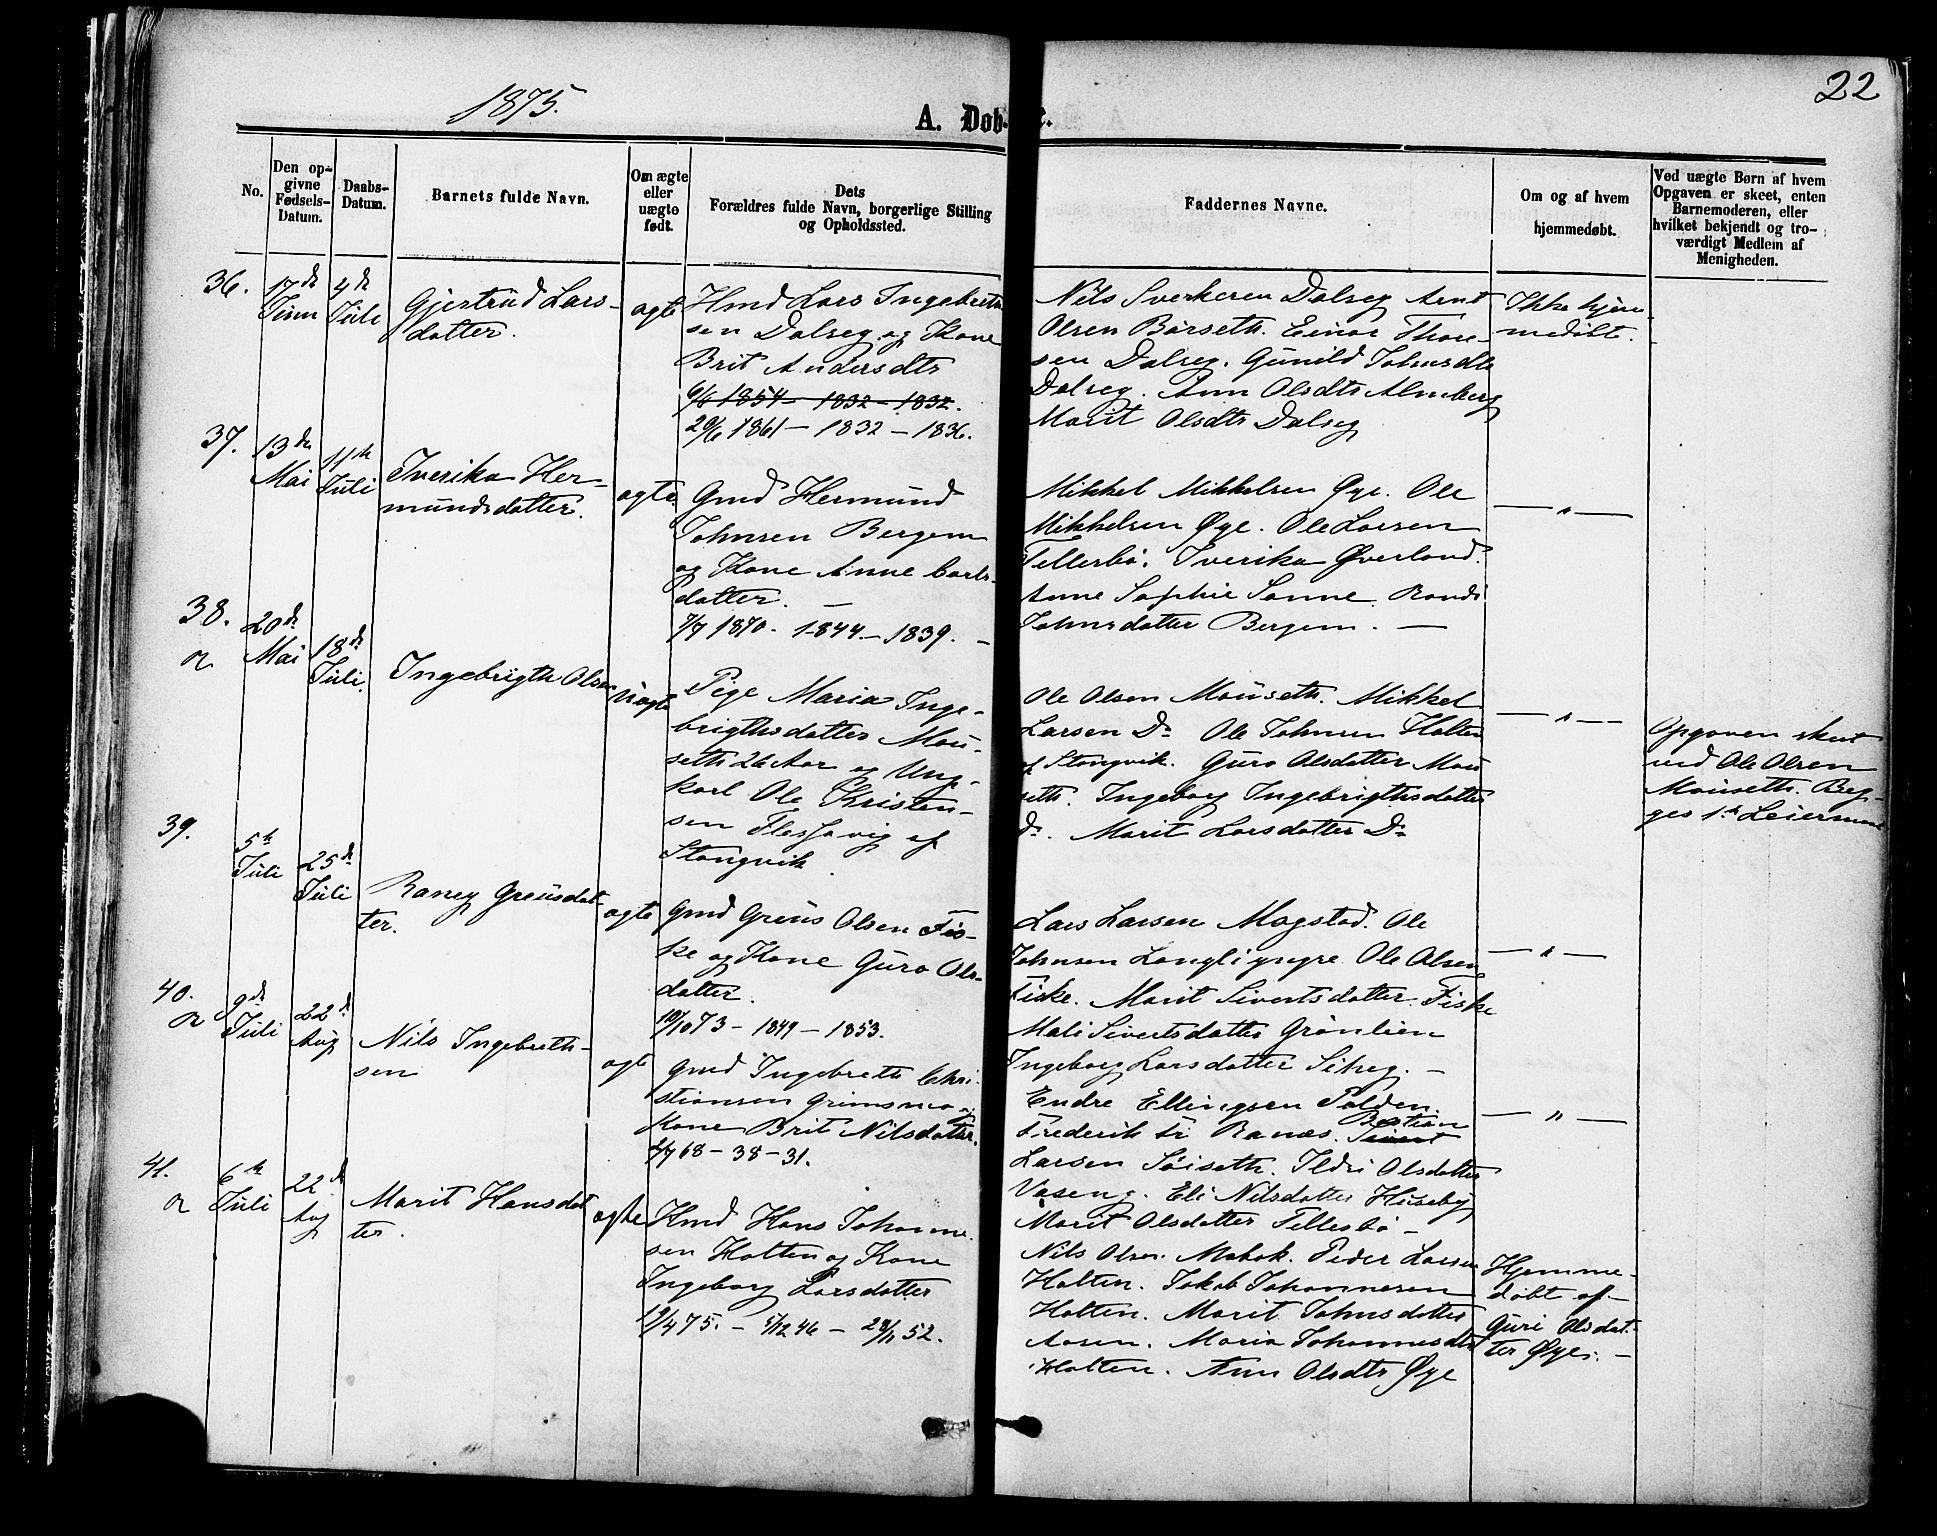 1875.
A. Døb-
e.
22
No.
Den op-
givne
Fødsels-
Datum.
Daabs-
Datum.
Barnets fulde Navn.
Om ægte
eller
uægte
født.
Dets
Forældres fulde Navn, borgerlige Stilling
og Opholdssted.
Faddernes Navne.
Om og af hvem
hjemmedøbt.
Ved uægte Børn af hvem
Opgaven er skeet, enten
Barnemoderen, eller
hvilket bekjendt og tro-
værdigt Medlem af
Menigheden.
36.
17de
Juni
4de
Juli
Gjertrud Lars-
datter.
ægte
Hmd Lars Ingebreth-
sen Dalseg og Kone
Brit Andersdtr
9/6 1854 - 1832 - 1832.
29/6 1861 - 1832 - 1836.
Nils Sverkeren Dalseg Arnt
Olsen Børseth. Einar Thore-
sen Dalseg. Gunild Johnsdtr
Dalseg. Ann Olsdtr Almberg
Marit Olsdtr Dalseg
Ikke hjem-
medøbt.
37.
13de
Mai
11te
Juli
Iverika Her-
mundsdatter.
ægte
Gmd Hermund
Johnsen Bergem
og Kone Anne Carls-
datter. —
7/7 1870. 1844 - 1839. -
Mikkel Mikkelsen Øye. Ole
Mikkelsen Øye. Ole Larsen
Tellesbø. Iverika Øverland.
Anne Sophie Sanne. Randi
Johnsdatter Bergem. —
— " —
38.
20de
Mai
18de
Juli.
Ingebrigth Olsen
Uægte
Pige Maria Inge-
brigthsdatter Mou-
seth 26 Aar og Ung-
karl Ole Kristen-
sen Flessavig af
Stangvik.
Ole Olsen Mouseth. Mikkel
Larsen Do Ole Johnsen Halten
af Stangvik. Guro Olsdatter Mou
seth. Ingeborg Ingebrigthsdatter
Do. Marit Larsdatter Do
— " —
Opgaven skeet
ved Ole Olsen
Mouseth. Beg-
ges 1te Leiermaal
39.
5te
Juli
25de
Juli
Raney Greusdat-
ter.
ægte
Gmd Greus Olsen Fis-
ke og Kone Guro Ols-
datter.
19/10 73 - 1849 - 1853.
Lars Larsen Magstad. Ole
Johnsen Langli yngre Ole Olsen
Fiske. Marit Sivertsdatter Fiske
Mali Sivertsdatter Grønlien
Ingeborg Larsdatter Siheg. -
— " —
40.
9de
Juli
22de
Aug
Nils Ingebreth-
sen
ægte
Gmd Ingebreth Chri-
stiansen Grimsmo og
Kone Brit Nilsdatter.
2/7 68 - 38 - 31.
Endre Ellingsen Polden.
Bastian
Frederik Fi Ranes. Sivert
Larsen Søiseth. Ildri Olsdatter
Vaseng. Eli Nilsdatter Huseby
Marit Olsdatter Tellesbø -
— " —
41.
6te
Juli
22de
Aug
Marit Hansdat
ter.
ægte
Hmd Hans Johanne-
sen Halten og Kone
Ingeborg Larsdatter
19/4 75. - 5/12 46 - 28/11 52.
Nils Olsen Mabok. Peder Larsen
Halten. Jakob Johannesen
Halten. Marit Johnsdatter
Aasen. Maria Johannesdtr
Halten. Ann Olsdtr Øye
Hjemme-
døbt af
Guri Olsdat-
ter Øye. -